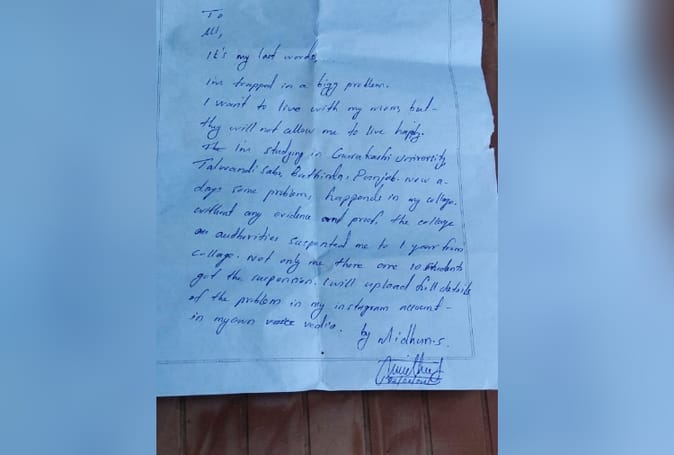 To
All,
It's my last words,...
I'm trapped in a bigg problem.
I want to live with my mom, but-
they will not allow me to live happly.
I'm studying in Gurukashi University
Talwandi Sabo, Bathinda, Poonjab. now a-
days some problems happends in my collage.
without any evidence and proof. the collage
authorities suspented me to 1 year from
collage. Not only me there are 10 students
got the suspension. I will upload full details
of the problem in my instagram account-
in my own vedio.
by Midhun.s.